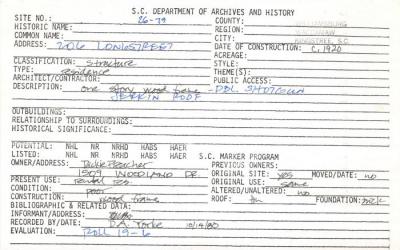 S.C. DEPARTMENT OF ARCHIVES AND HISTORY
SITE NO.: 26-79 COUNTY: WILLIAMSBURG
HISTORIC NAME: REGION:
COMMON NAME: CITY: KINGSTREE, S.C.
ADDRESS: 206 LONGSTREET DATE OF CONSTRUCTION: C. 1920
ACREAGE:
CLASSIFICATION: Structure STYLE:
TYPE: residence THEME(S):
ARCHITECT/CONTRACTOR: PUBLIC ACCESS:
DESCRIPTION: one story wood frame - DBL SHOTGUN
JERKIN ROOF
OUTBUILDINGS:
RELATIONSHIP TO SURROUNDINGS:
HISTORICAL SIGNIFICANCE:
POTENTIAL: NHL NR NRHD HABS HAER
LISTED: NHL NR NRHD HABS HAER S.C. MARKER PROGRAM
OWNER/ADDRESS: PREVIOUS OWNERS:
1509 WOODLAND DR. ORIGINAL SITE: yes MOVED/DATE: no
PRESENT USE: rental res. ORIGINAL USE: same
CONDITION: poor ALTERED/UNALTERED: no
CONSTRUCTION: wood frame ROOF: tin FOUNDATION: brick
BIBLIOGRAPHIC & RELATED DATA:
INFORMANT/ADDRESS:
RECORDED BY/DATE: D.A. 10/14/80
EVALUATION: ROLL 19-6